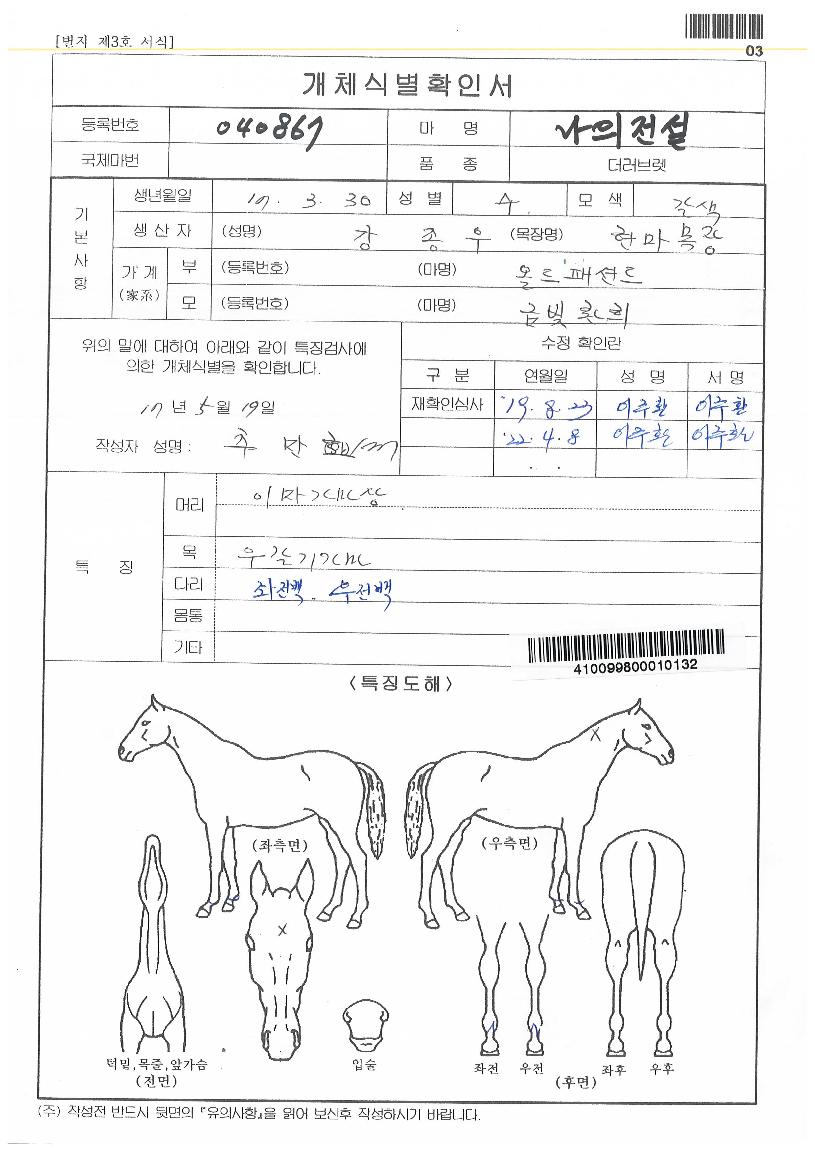 [별지 제3호 서식]
03
개체식별확인서
등록번호 040867 마 명 나의전설
국제마번 품 종 더러브렛
기본사항
생년월일 17. 3. 30 성 별 수 모 색 갈색
생 산 자 (성명) 강 종 우 (목장명) 한마목장
가계 (家系) 부 (등록번호) (마명) 올드패션드
모 (등록번호) (마명) 금빛
위의 말에 대하여 아래와 같이 특징검사에
의한 개체식별을 확인합니다.
17년 5월 19일
작성자 성명 : 추 만
수정 확인란
구 분 연월일 성 명 서 명
재확인심사 '19. 8. 23 이주환 이주환
'22. 4. 8 이주환 이주환
. .
특 징
머리 이마가마상
목 우날기가마
다리 좌전백. 우전백
몸통
기타
410099800010132
<특징도해>
(좌측면) (우측면)
턱밑,목줄,앞가슴
(전면)
입술
좌전 우전
(후면)
좌후 우후
(주) 작성전 반드시 뒷면의 『유의사항』을 읽어 보신후 작성하시기 바랍니다.